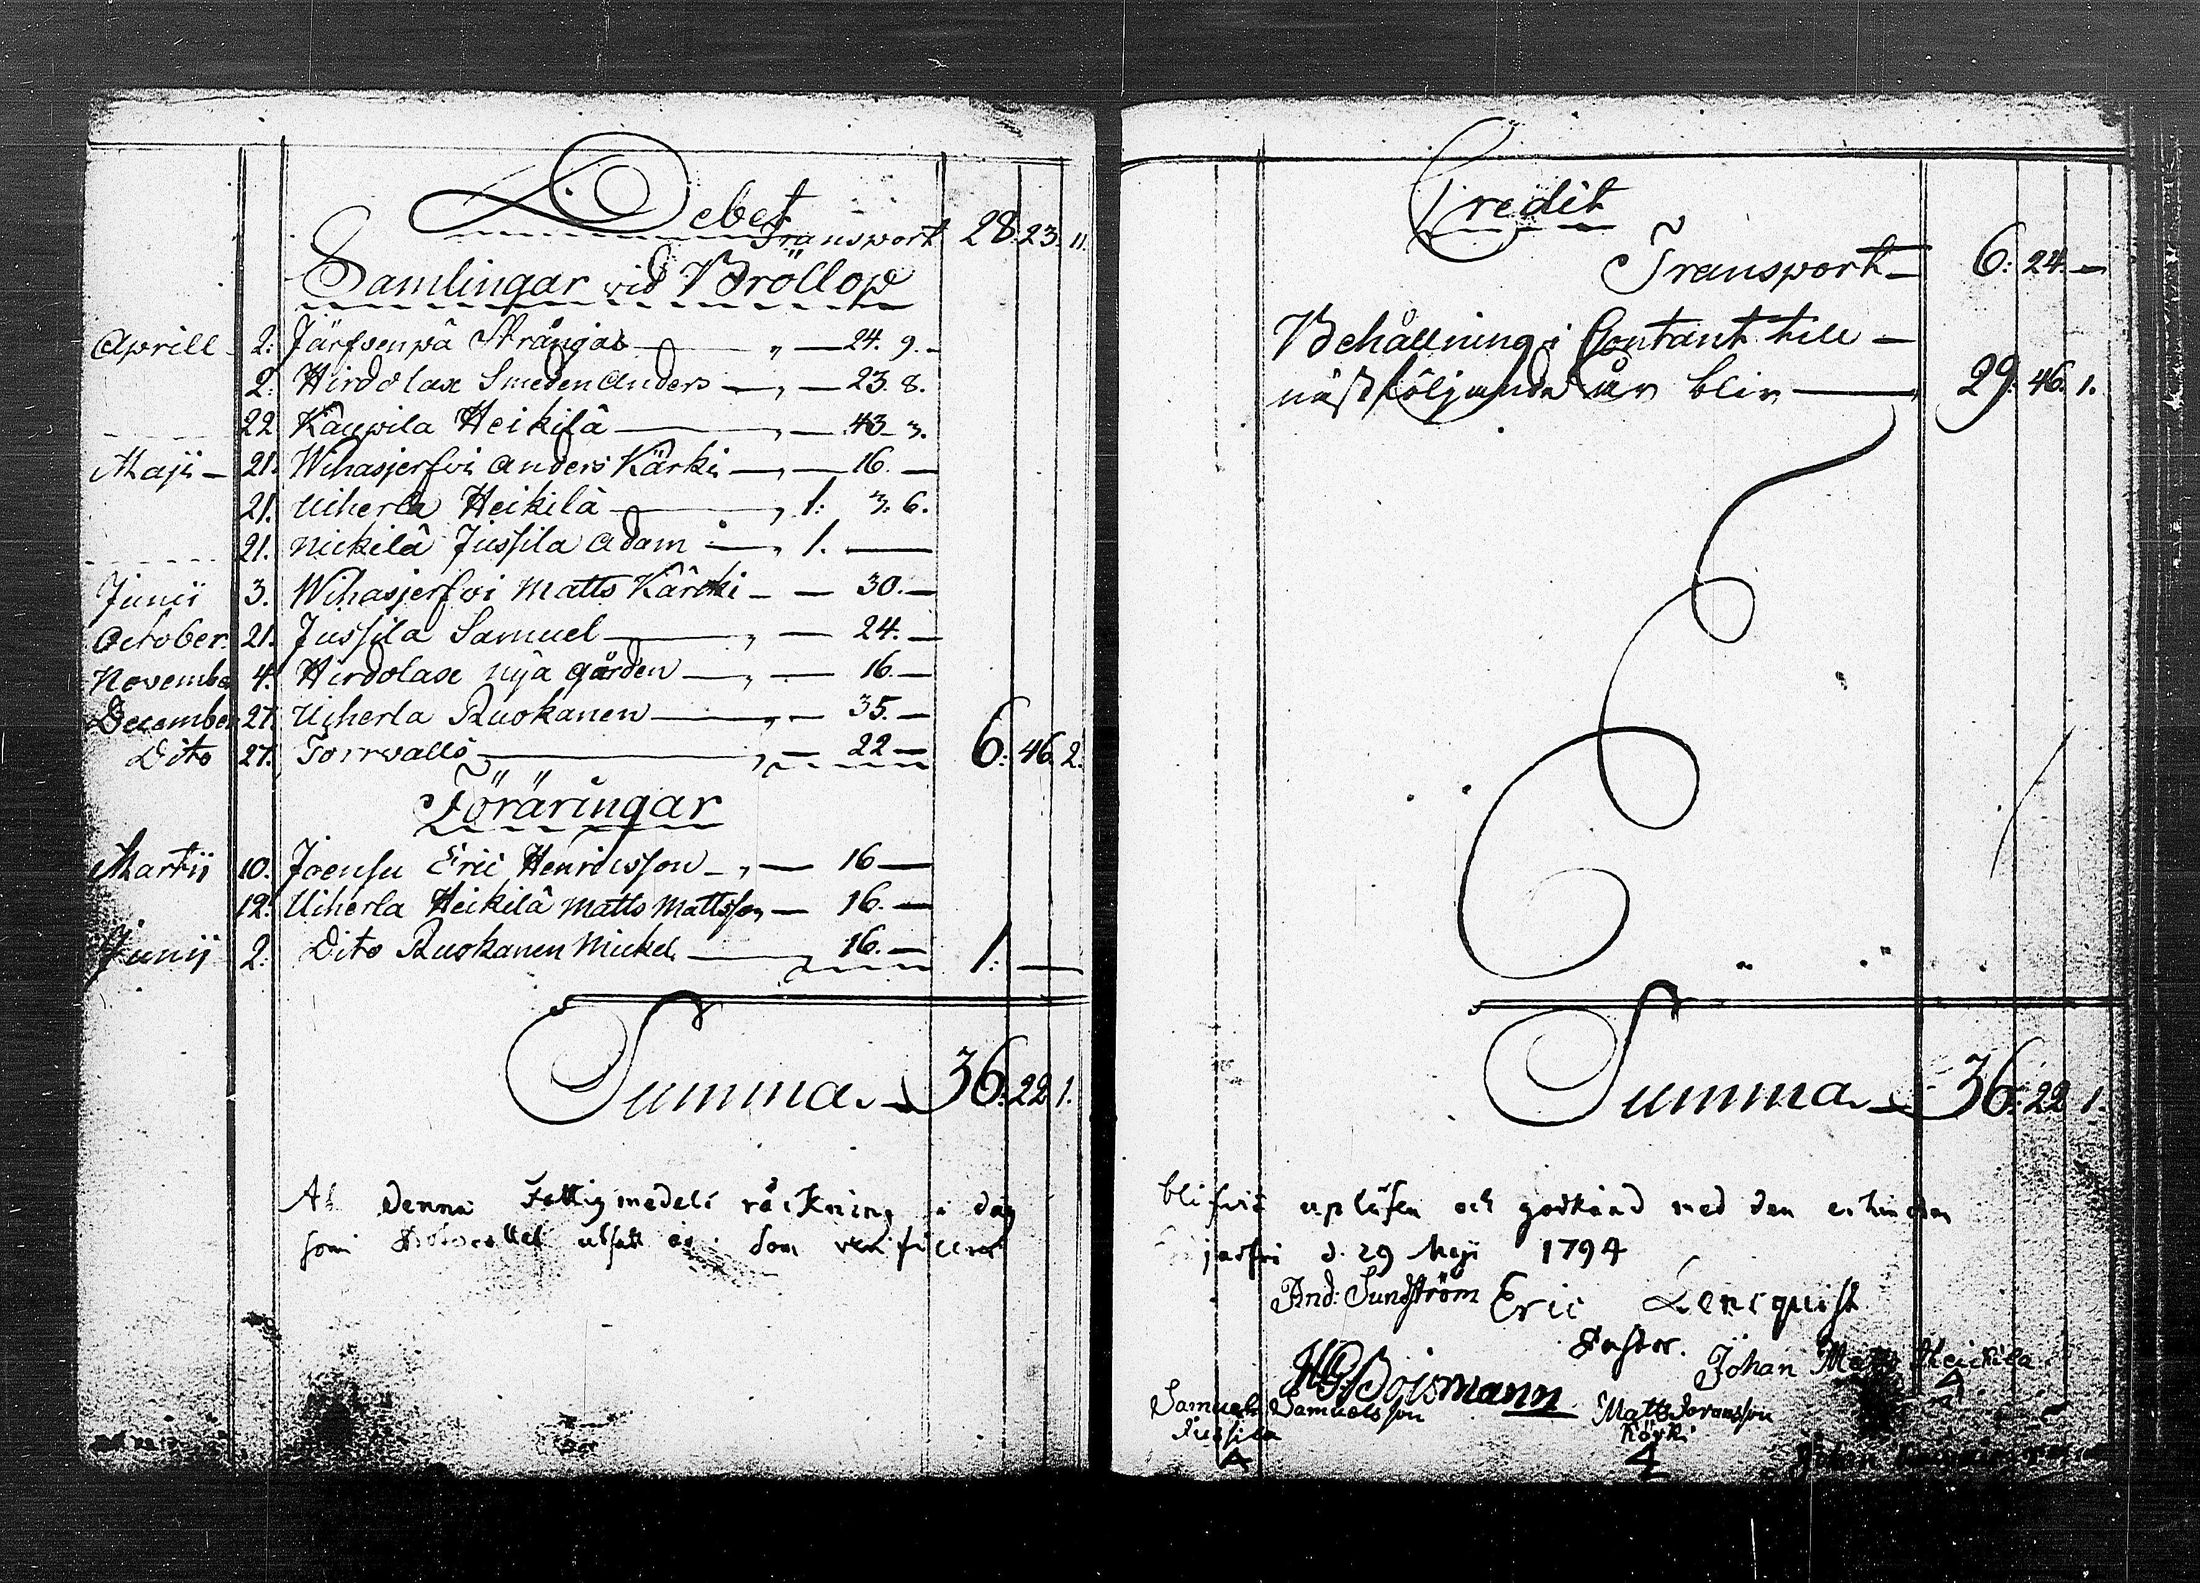 Debet
Transport 28. 23. 11.
Samlingar vid Bröllop
Aprill 2. Järfvenpä Strångas — " — 24. 9.
2. Hirdolax Smeden Anders — " — 23. 8.
22 Kaupila Heikilä — " — 43. 3.
Maji — 21. Wihasjerfvi Anders Kärki — " — 16. —
21. Uiherla Heikilä — " 1: 3. 6.
21. Nickilä Jussila Adam — " 1. —
Junii 3. Wihasjerfvi Matts Kärki — — 30. —
October 21. Jussila Samuel — " — 24. —
November 4. Hirdolax nya gården — " — 16. —
December 27. Uiherla Ruokanen — " — 35. —
Dito 27. Torrvalls — " — 22 — 6: 46. 2.
Föräringar
Martii 10. Joensu Eric Henricsson — " — 16 —
12. Uiherla Heikilä Matts Mattsson — 16. —
Junij 2. Dito Ruokanen Mickel — 16. — 1: —
Summa — 36: 22 1.
At denna Fattigmedels räkning i dag
som Protocollet utsatt är som verificerar
Credit
Transport — 6: 24. —
Behållning i Contant till —
nästföljande år blir — 29. 46. 1.
Summa — 36: 22 1.
blifvit upläsen och godkänd med den
d. 29 Maji 1794
And: Sundström Eric Lencquist
Pastor.
Johan Matts Heickilä
HG Boismann
Samuel Samuelsson Matts Göransson
Jussila Körki
Johan